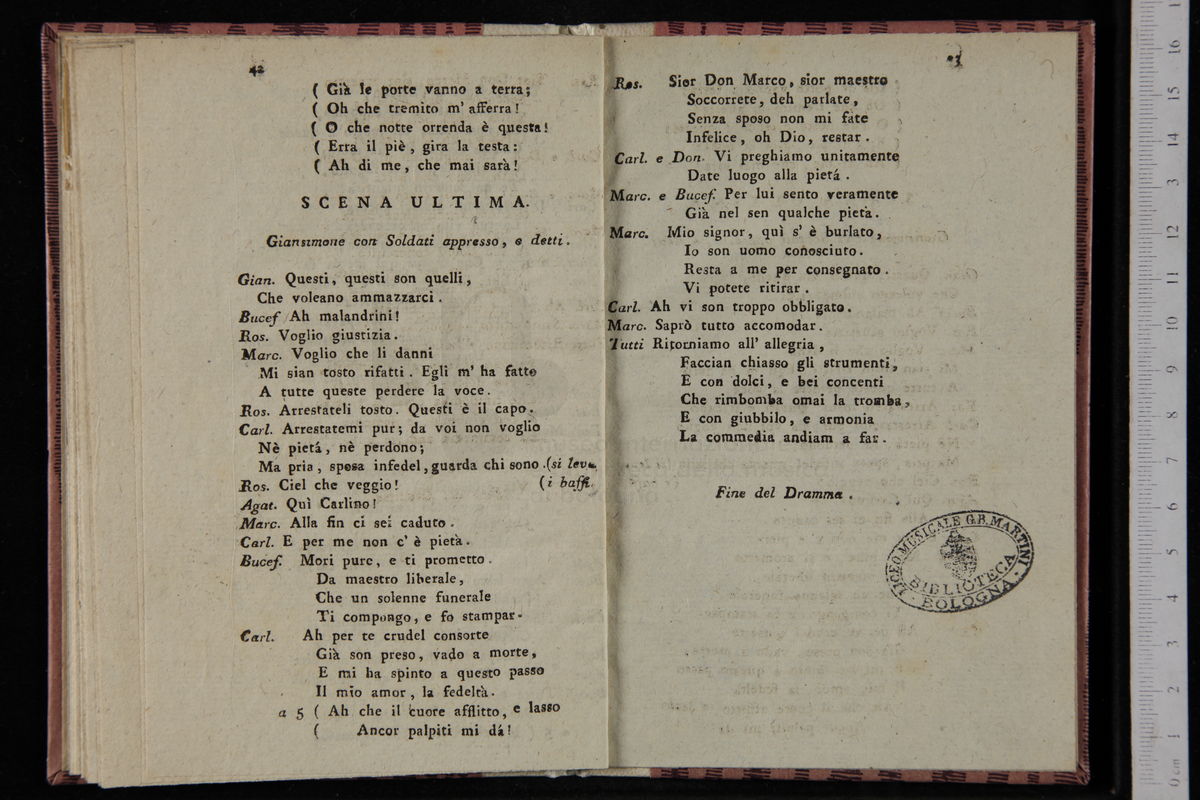 42
( Già le porte vanno a terra;
( Oh che tremito m' afferra!
( O che notte orrenda è questa!
( Erra il piè, gira la testa:
( Ah di me, che mai sarà!
SCENA ULTIMA.
Giansimone con Soldati appresso, e detti.
Gian. Questi, questi son quelli,
Che voleano ammazzarci.
Bucef Ah malandrini!
Ros. Voglio giustizia.
Marc. Voglio che li danni
Mi sian tosto rifatti. Egli m' ha fatto
A tutte queste perdere la voce.
Ros. Arrestateli tosto. Questi è il capo.
Carl. Arrestatemi pur; da voi non voglio
Nè pietá, nè perdono;
Ma pria, sposa infedel, guarda chi sono. (si leva
Ros. Ciel che veggio! (i baffi.
Agat. Quì Carlino!
Marc. Alla fin ci sei caduto.
Carl. E per me non c' è pietà.
Bucef. Mori pure, e ti prometto.
Da maestro liberale,
Che un solenne funerale
Ti compongo, e fo stampar.
Carl. Ah per te crudel consorte
Già son preso, vado a morte,
E mi ha spinto a questo passo
Il mio amor, la fedeltà.
a 5 ( Ah che il cuore afflitto, e lasso
( Ancor palpiti mi dá!
Ros. Sior Don Marco, sior maestro
Soccorrete, deh parlate,
Senza sposo non mi fate
Infelice, oh Dio, restar.
Carl. e Don. Vi preghiamo unitamente
Date luogo alla pietá.
Marc. e Bucef. Per lui sento veramente
Già nel sen qualche pietà.
Marc. Mio signor, quì s' è burlato,
Io son uomo conosciuto.
Resta a me per consegnato.
Vi potete ritirar.
Carl. Ah vi son troppo obbligato.
Marc. Saprò tutto accomodar.
Tutti Ritorniamo all' allegria,
Faccian chiasso gli strumenti,
E con dolci, e bei concenti
Che rimbomba omai la tromba,
E con giubbilo, e armonia
La commedia andiam a far.
Fine del Dramma.
LICEO MUSICALE G.B. MARTINI
BIBLIOTECA
BOLOGNA
0 cm 1 2 3 4 5 6 7 8 9 10 11 12 13 14 15 16